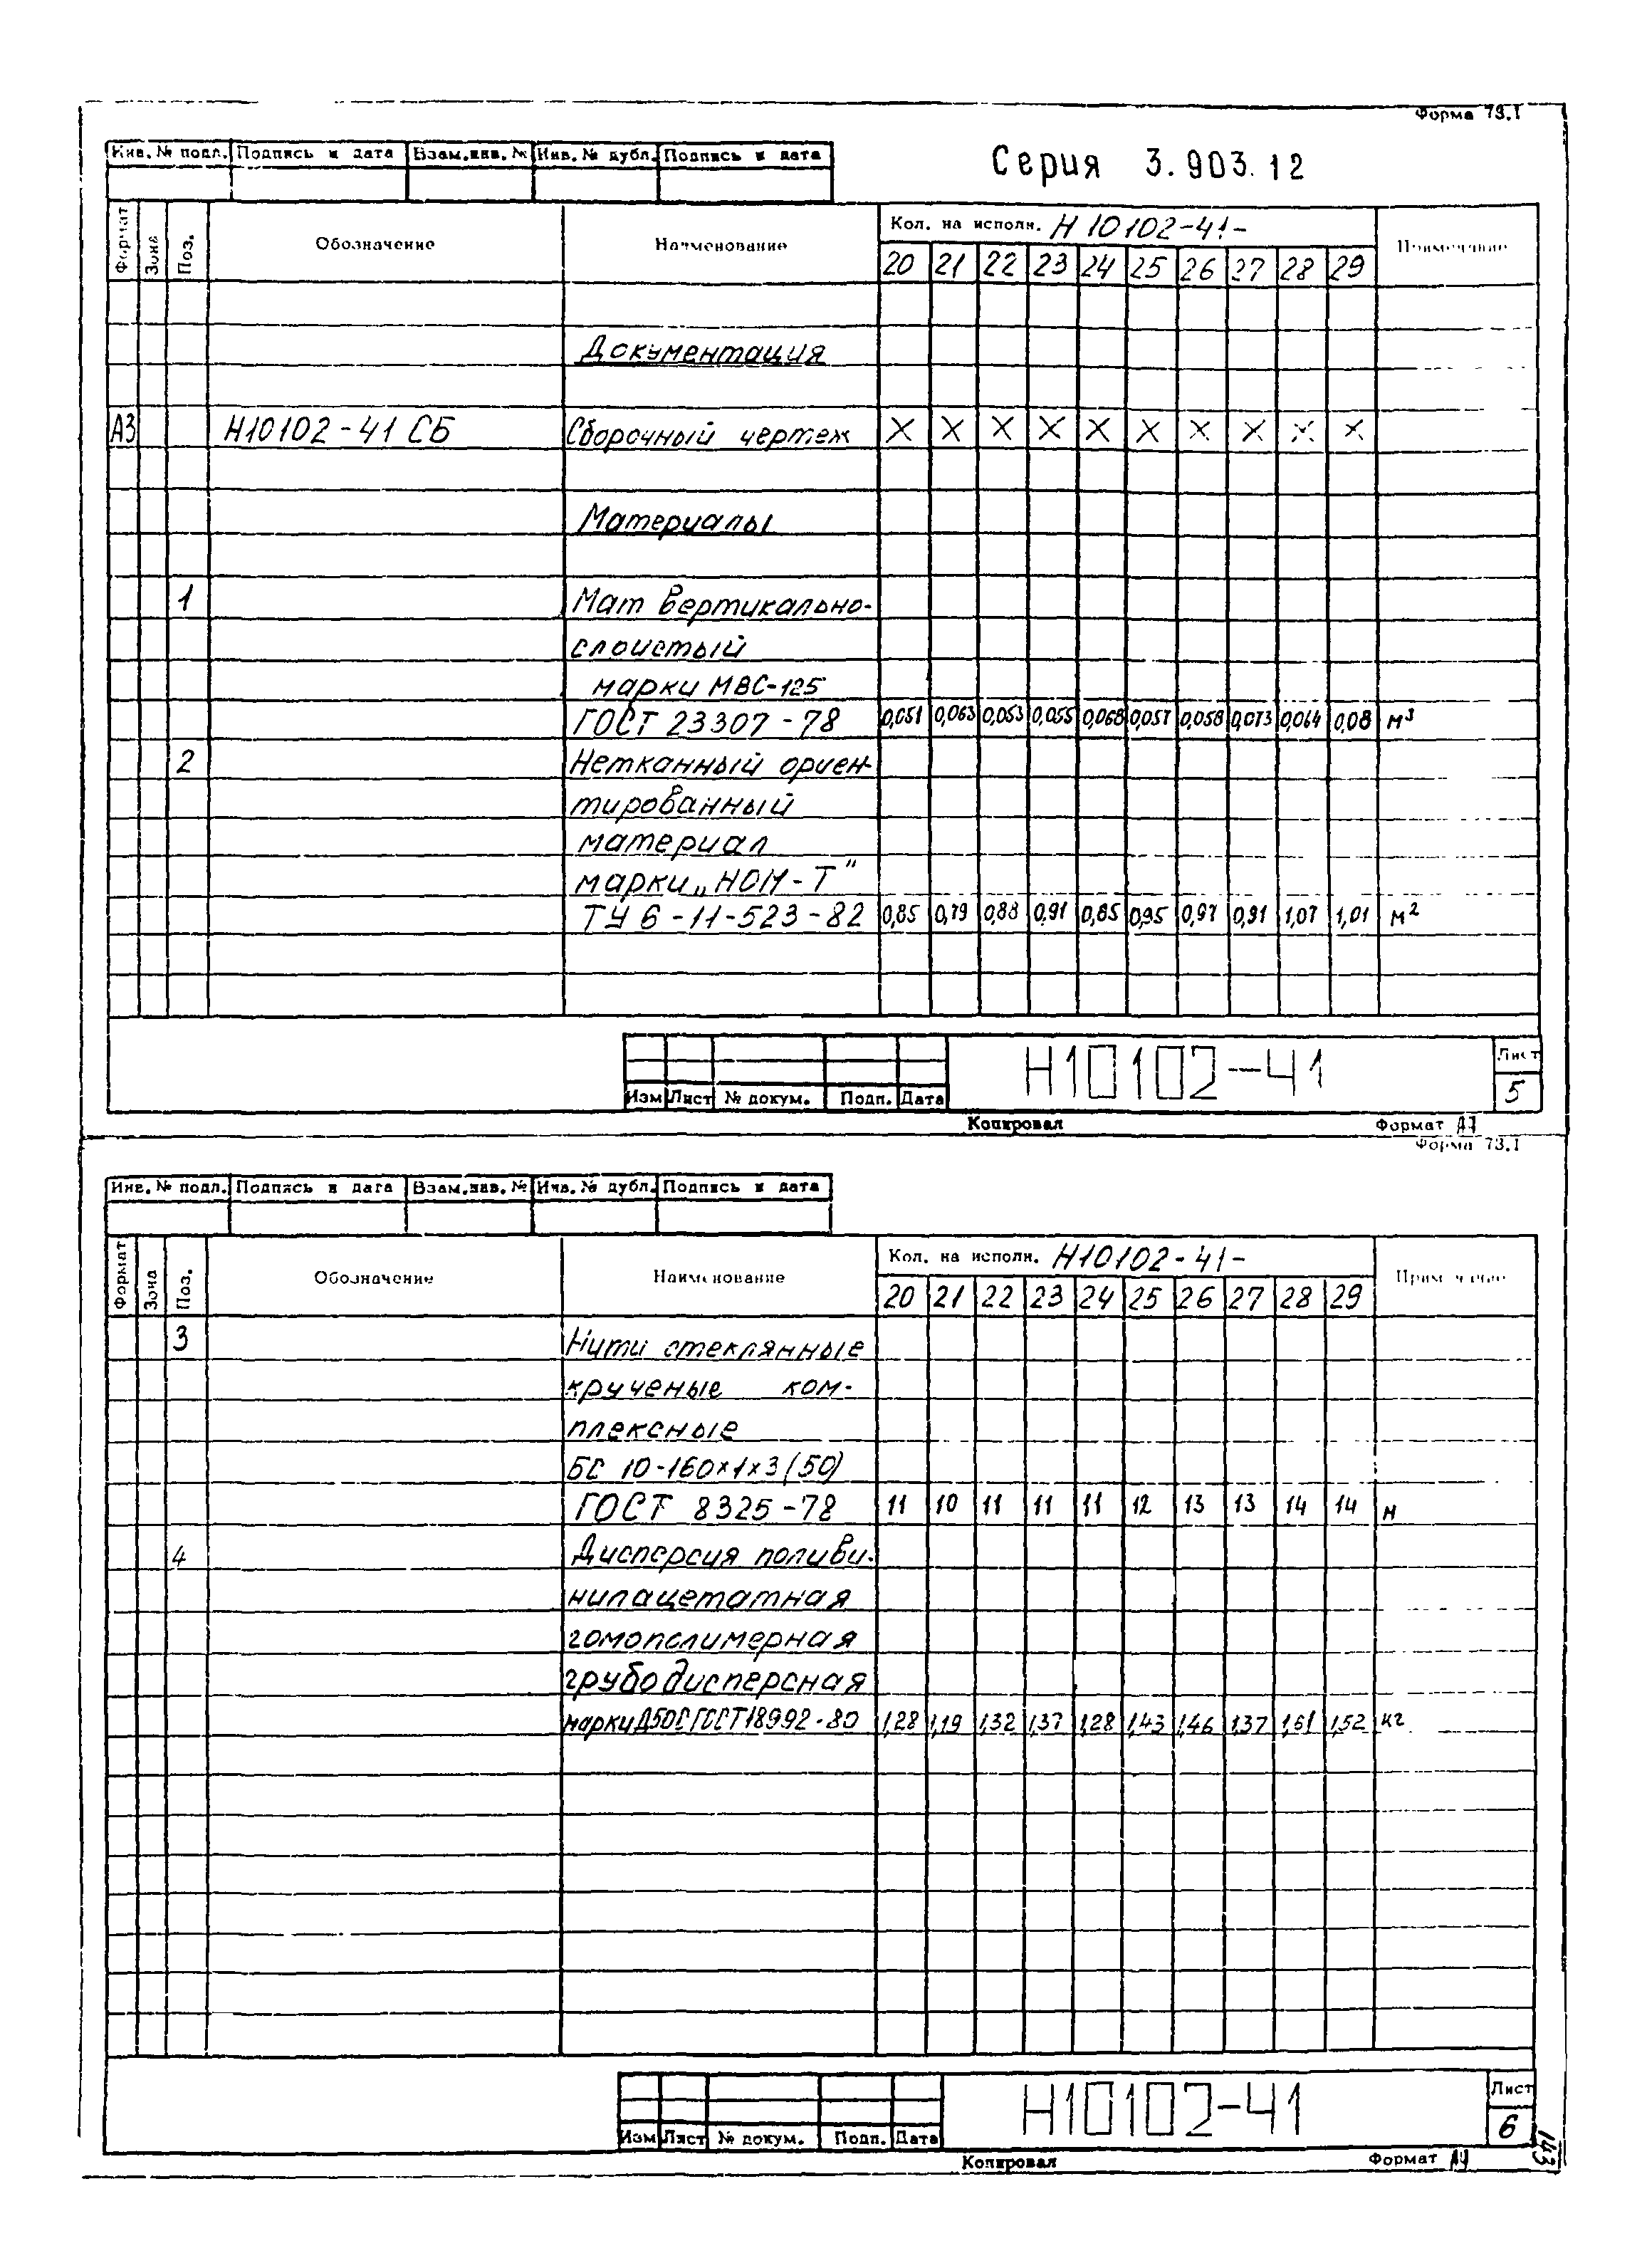 Форма 73.1
Инв. № подл. Подпись и дата Взам.инв. № Инв. № дубл. Подпись и дата
Серия 3.903.12
Формат Зона Поз. Обозначение Наименование Кол. на исполн. Н10102-41- Примечание
20 21 22 23 24 25 26 27 28 29
Документация
А3 Н10102-41 СБ Сборочный чертеж X X X X X X X X X X
Материалы
1 Мат вертикально-
слоистый
марки МВС-125
ГОСТ 23307-78 0,051 0,063 0,053 0,055 0,068 0,057 0,058 0,073 0,064 0,08 м³
2 Нетканный ориен-
тированный
материал
марки „НОМ-Т"
ТУ 6-11-523-82 0,85 0,79 0,88 0,91 0,85 0,95 0,97 0,91 1,07 1,01 м²
Изм Лист № докум. Подп. Дата Н10102-41 Лист
5
Копировал Формат А3
Форма 73.1
Инв. № подл. Подпись и дата Взам.инв. № Инв. № дубл. Подпись и дата
Формат Зона Поз. Обозначение Наименование Кол. на исполн. Н10102-41-
20 21 22 23 24 25 26 27 28 29
3 Нити стеклянные
крученые ком-
плексные
БС 10-160×1×3(50)
ГОСТ 8325-78 11 10 11 11 11 12 13 13 14 14 м
4 Дисперсия поливи-
нилацетатная
гомополимерная
грубодисперсная
марки Д50С ГОСТ 18992-80 1,28 1,19 1,32 1,37 1,28 1,43 1,46 1,37 1,61 1,52 кг
Изм Лист № докум. Подп. Дата Н10102-41 Лист
6
Копировал Формат А4
143